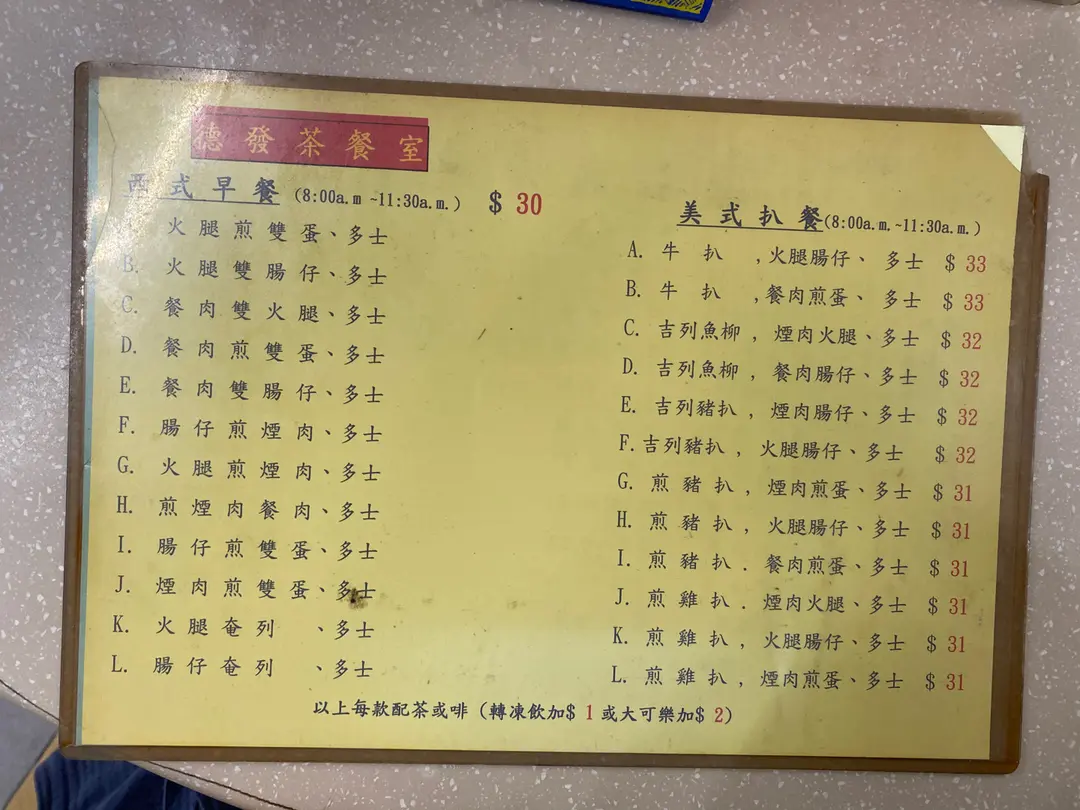 德發茶餐室
西式早餐 (8:00a.m ~11:30a.m.) $ 30
火腿煎雙蛋、多士
B. 火腿雙腸仔、多士
C. 餐肉雙火腿、多士
D. 餐肉煎雙蛋、多士
E. 餐肉雙腸仔、多士
F. 腸仔煎煙肉、多士
G. 火腿煎煙肉、多士
H. 煎煙肉餐肉、多士
I. 腸仔煎雙蛋、多士
J. 煙肉煎雙蛋、多士
K. 火腿奄列 、多士
L. 腸仔奄列 、多士
美式扒餐(8:00a.m.~11:30a.m.)
A. 牛 扒 ,火腿腸仔、多士 $ 33
B. 牛 扒 ,餐肉煎蛋、多士 $ 33
C. 吉列魚柳, 煙肉火腿、多士 $ 32
D. 吉列魚柳, 餐肉腸仔、多士 $ 32
E. 吉列豬扒, 煙肉腸仔、多士 $ 32
F. 吉列豬扒, 火腿腸仔、多士 $ 32
G. 煎豬扒, 煙肉煎蛋、多士 $ 31
H. 煎豬扒, 火腿腸仔、多士 $ 31
I. 煎豬扒. 餐肉煎蛋、多士 $ 31
J. 煎雞扒. 煙肉火腿、多士 $ 31
K. 煎雞扒, 火腿腸仔、多士 $ 31
L. 煎雞扒, 煙肉煎蛋、多士 $ 31
以上每款配茶或啡 (轉凍飲加$ 1 或大可樂加$ 2)